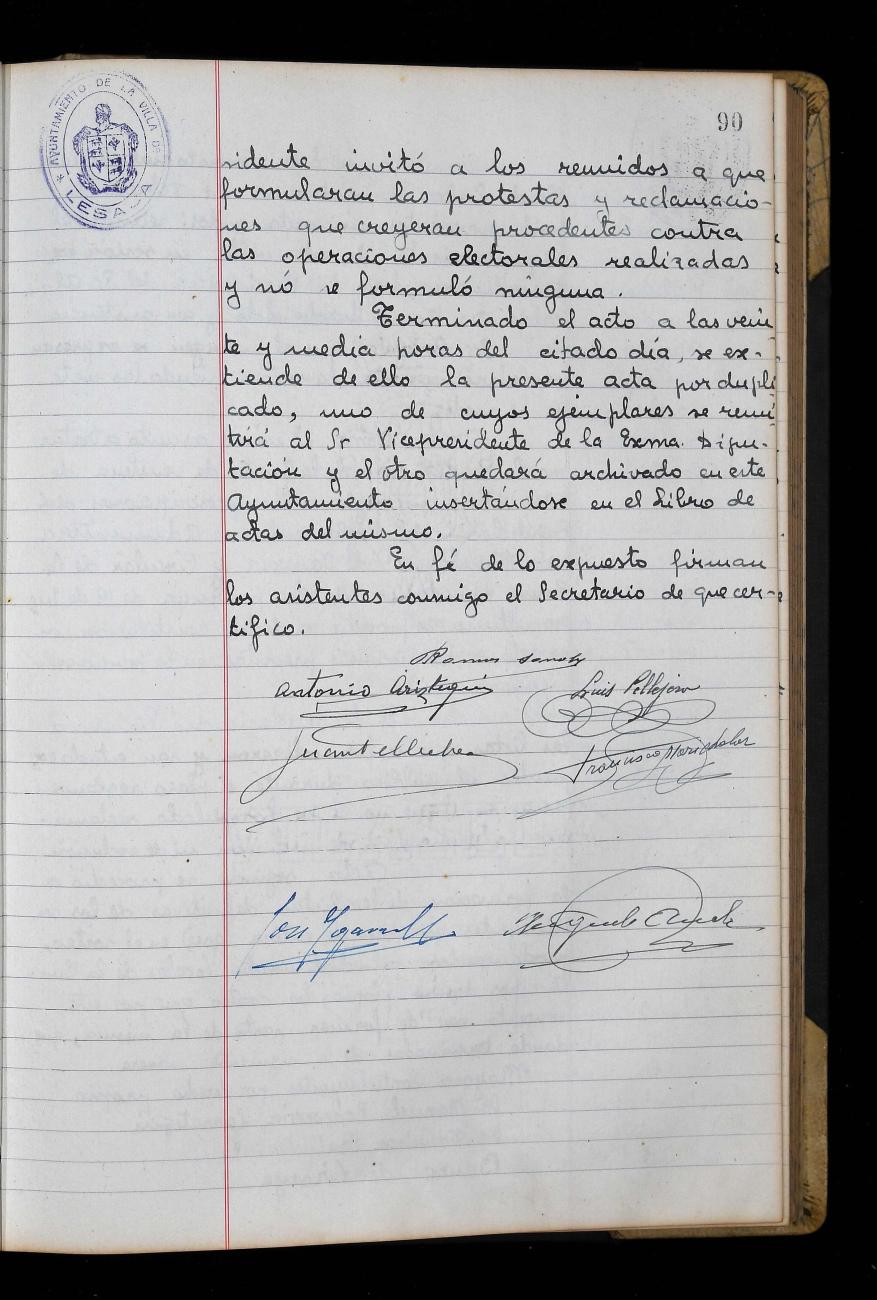 90
AYUNTAMIENTO DE LA VILLA DE
* LESACA
sidente invitó a los reunidos a que
formularan las protestas y reclamacio-
nes que creyeran procedentes contra
las operaciones electorales realizadas
y nó se formuló ninguna.
Terminado el acto a las vein
te y media horas del citado día, se ex-
tiende de ello la presente acta por dupli
cado, uno de cuyos ejemplares se remi
tirá al Sr Vicepresidente de la Exma. Dipu-
tación y el otro quedará archivado en este
Ayuntamiento insertándose en el Libro de
actas del mismo.
En fé de lo expuesto firman
los asistentes conmigo el Secretario de que cer-
tifico.
Ramon
Antonio Aristegui
Luis Pellejero
Juan Tellechea
Francisco